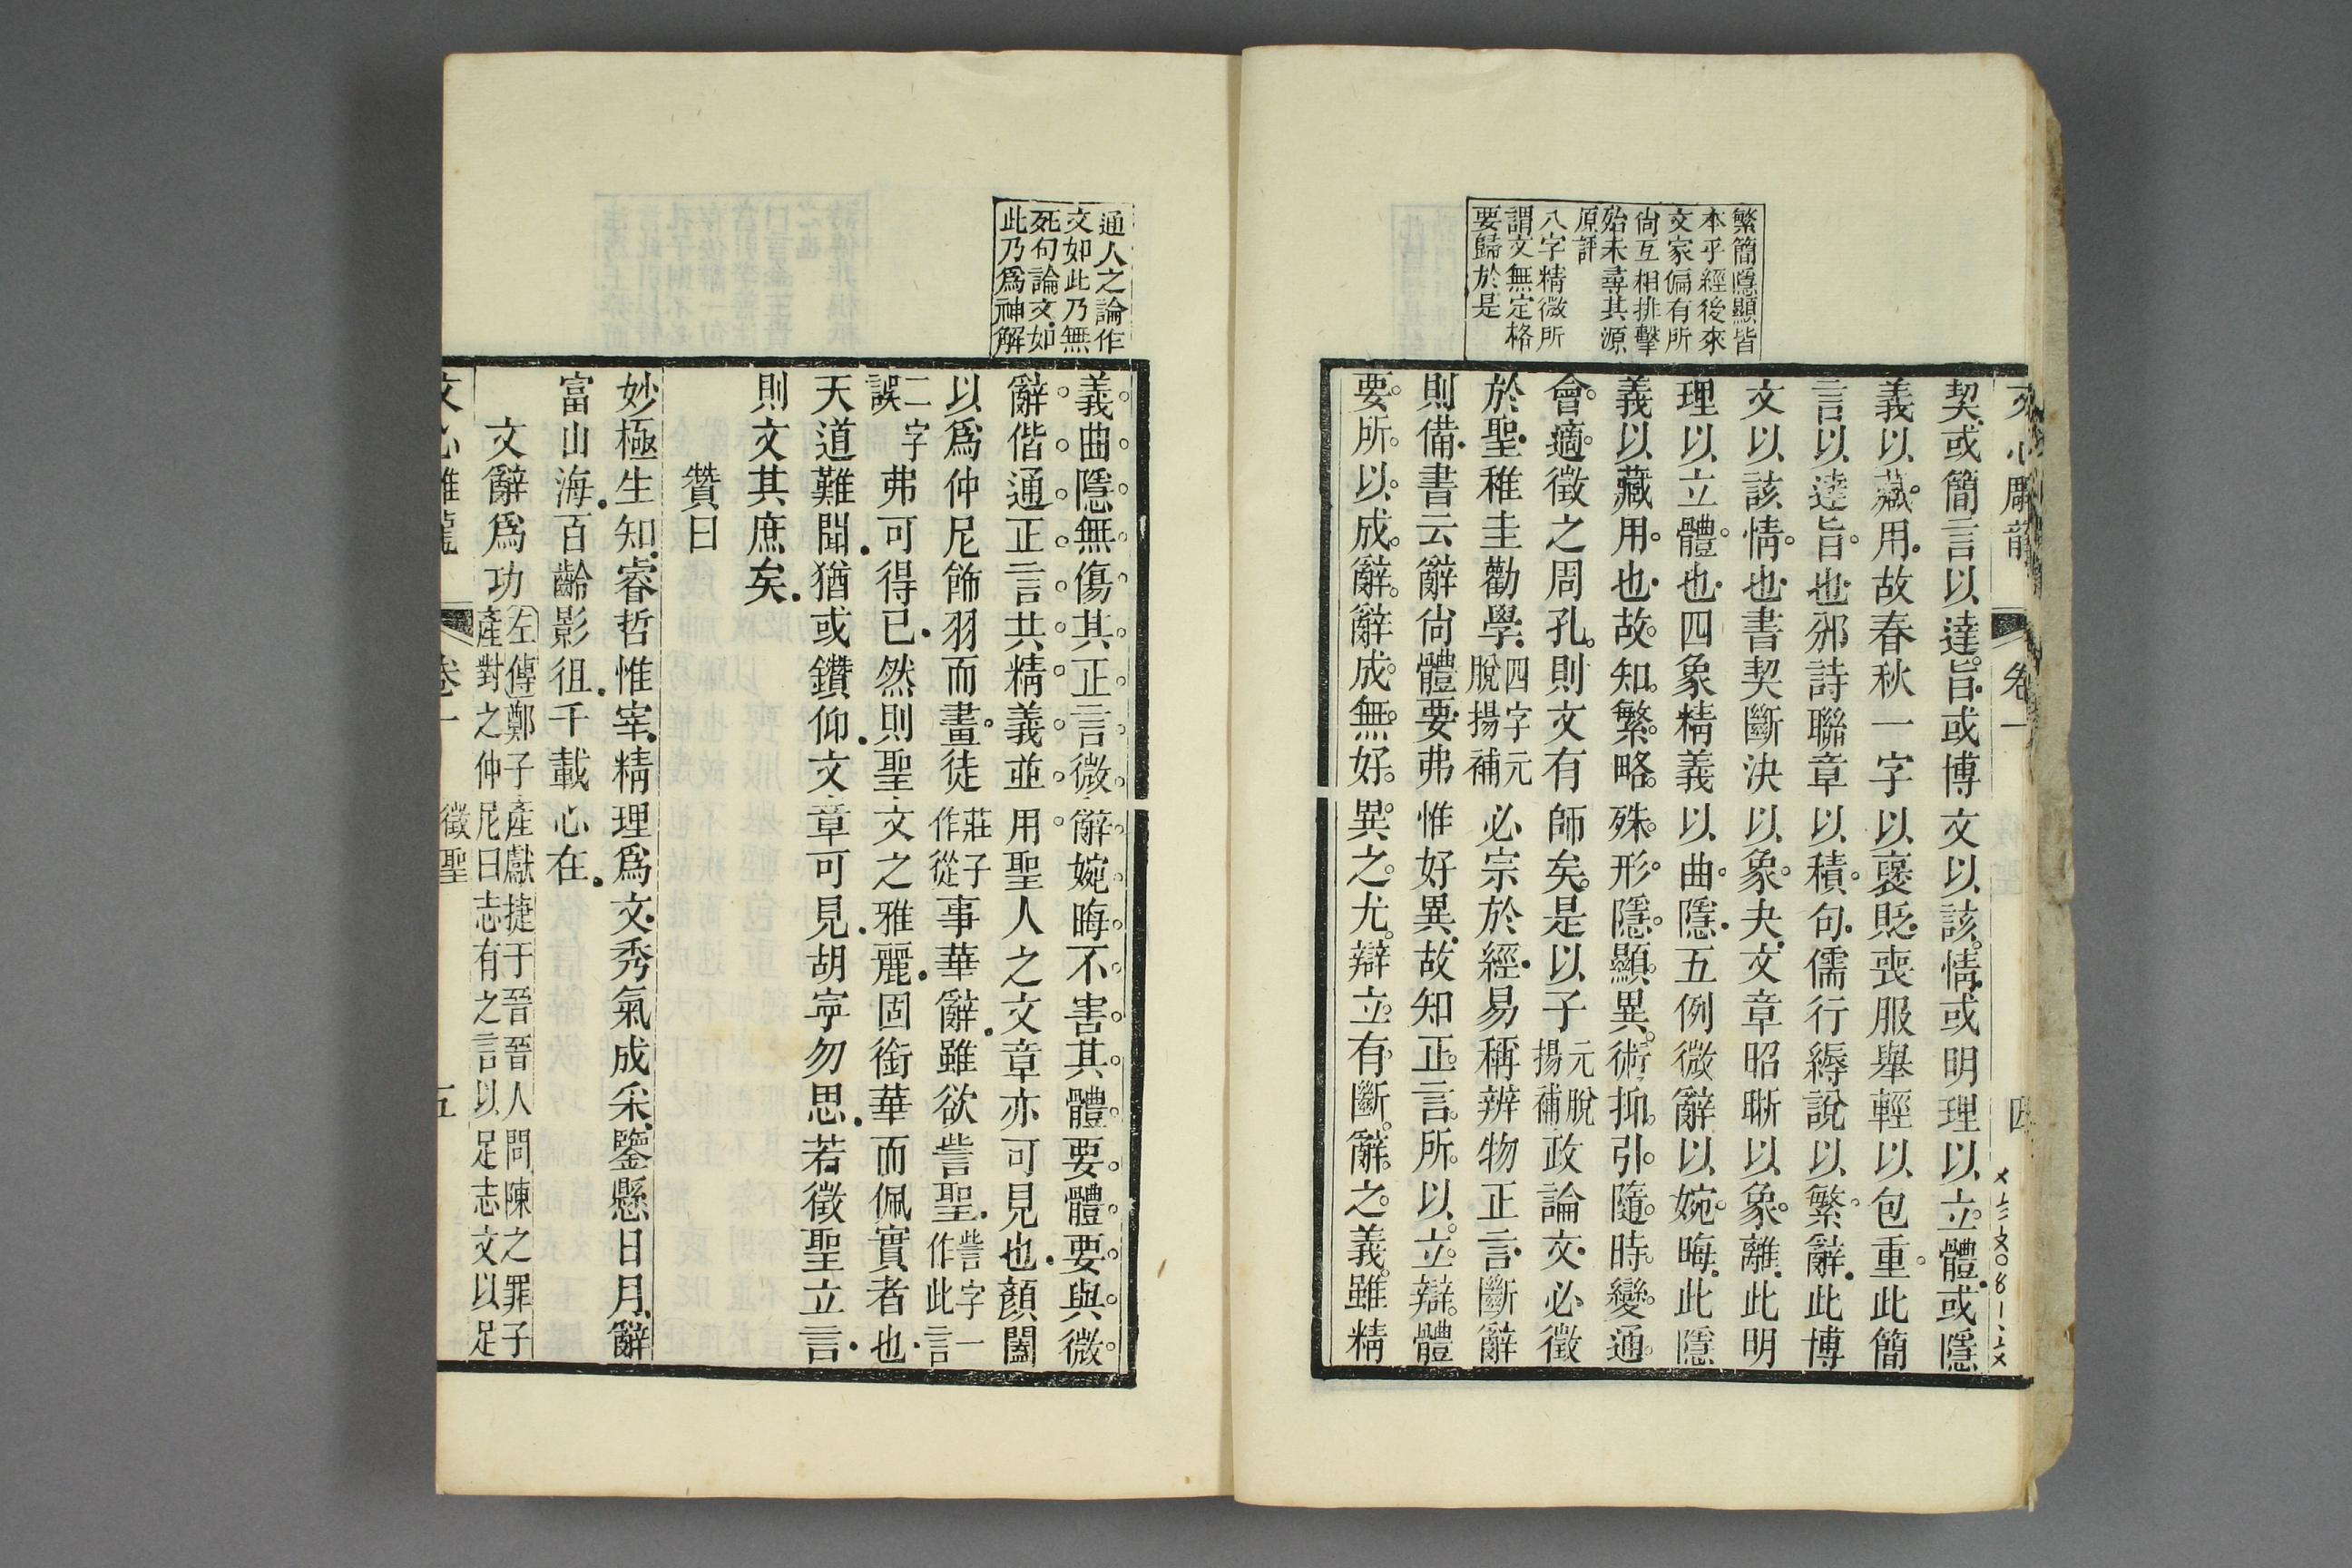 文心雕龍 卷一 四
繁簡隱顯皆
本乎經後來
文家偏有所
尙互相排擊
殆未尋其源
原評
八字精微所
謂文無定格
要歸於是
契或簡言以達旨或博文以該情或明理以立體或隱
義以藏用故春秋一字以褒貶喪服舉輕以包重此簡
言以達旨也邠詩聯章以積句儒行縟說以繁辭此博
文以該情也書契斷決以象夬文章昭晣以象離此明
理以立體也四象精義以曲隱五例微辭以婉晦此隱
義以藏用也故知繁略殊形隱顯異術抑引隨時變通
會適徵之周孔則文有師矣是以子元脫揚補政論文必徵
於聖稚圭勸學四字元脫揚補必宗於經易稱辨物正言斷辭
則備書云辭尙體要弗惟好異故知正言所以立辯體
要所以成辭辭成無好異之尤辯立有斷辭之義雖精
通人之論作
文如此乃無
死句論文如
此乃爲神解
義曲隱無傷其正言微辭婉晦不害其體要體要與微
辭偕通正言共精義並用聖人之文章亦可見也顏闔
以爲仲尼飾羽而畫徒莊子作從事華辭雖欲訾聖訾字一作此言
二字誤弗可得已然則聖文之雅麗固銜華而佩實者也
天道難聞猶或鑽仰文章可見胡寧勿思若徵聖立言
則文其庶矣
贊曰
妙極生知睿哲惟宰精理爲文秀氣成采鑒懸日月辭
富山海百齡影徂千載心在
文辭爲功左傳鄭子產獻捷于晉晉人問陳之罪子
產對之仲尼曰志有之言以足志文以足
文心雕龍 卷一 徵聖 五